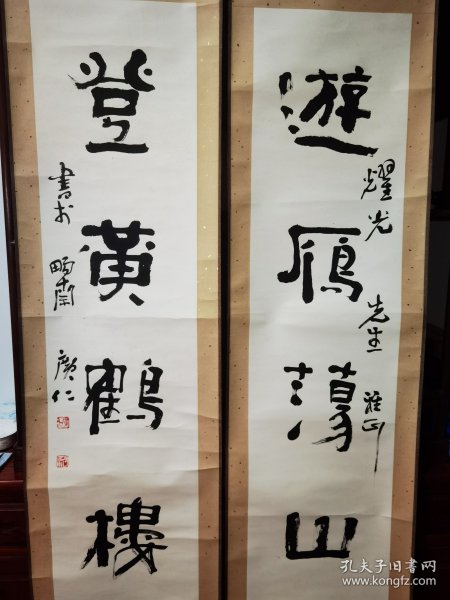 遊雁蕩山
耀光先生雅正
登黃鶴樓
書於
廣仁
孔夫子旧书网
www.kongfz.com